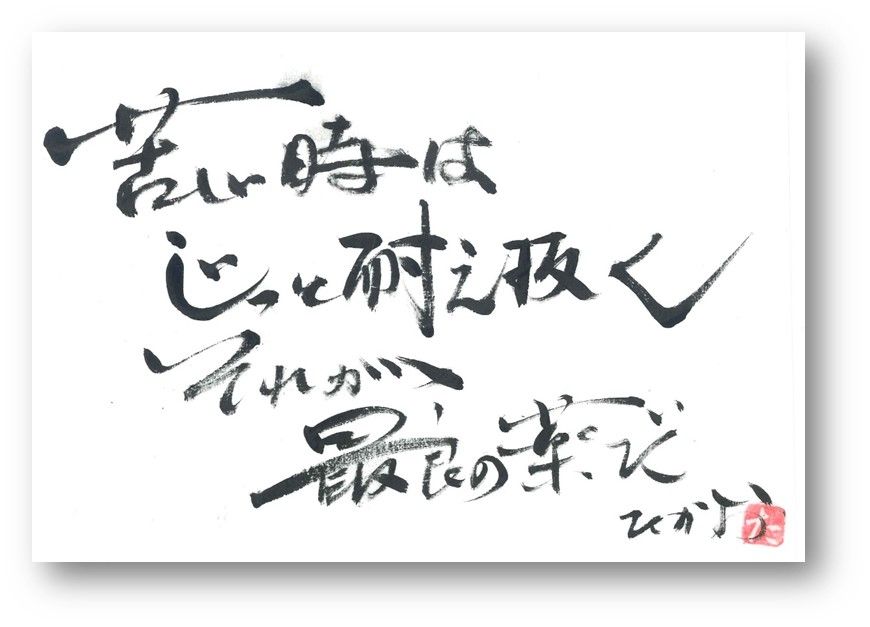 苦しい時は
じっと耐え抜く
それが、
最良の薬だ